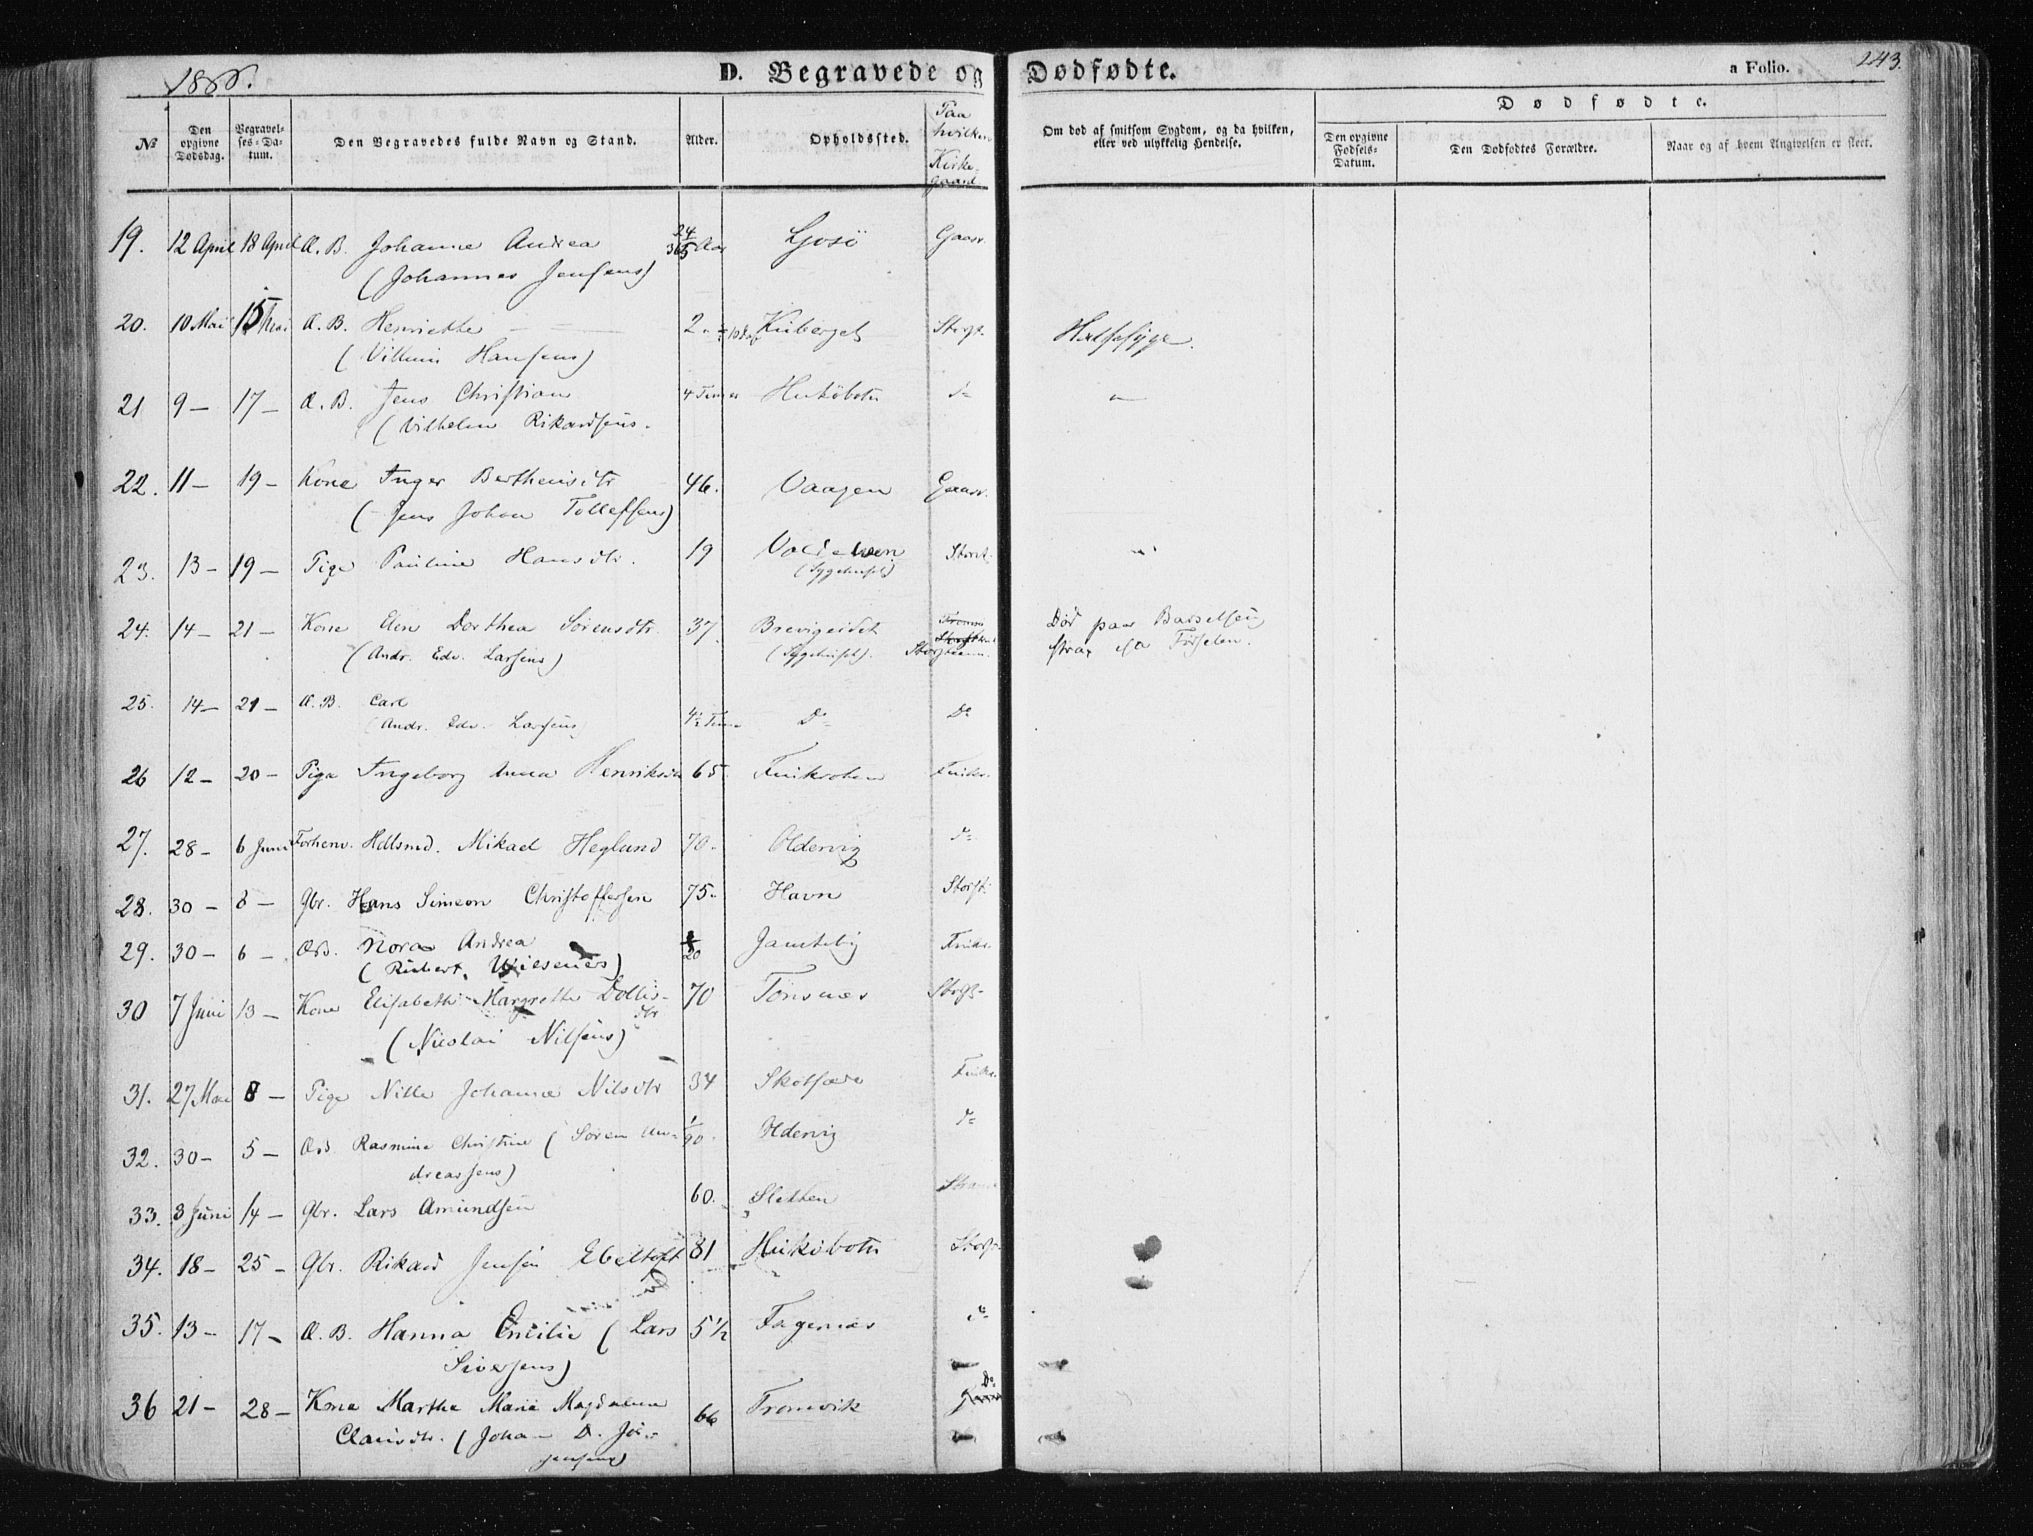 1880.
D. Begravede og Dødfødte.
a Folio. 243.
Dødfødte.
№
Den opgivne Dødsdag.
Begravelses-Datum.
Den Begravedes fulde Navn og Stand.
Alder.
Opholdssted.
Paa hvilken Kirkegaard
Om død af smitsom Sygdom, og da hvilken, eller ved ulykkelig Hendelse.
Den opgivne Fødsels-Datum.
Den Dødfødtes Forældre.
Naar og af hvem Angivelsen er skeet.
19. 12 April 18 April Æ. B. Johanne Andrea 24/365 Aar Ljosö Gaasv.
(Johannes Jensens)
20. 10 Mai 15 Mai Æ. B. Henriette 2 Kuberget Storst. Halssyge.
(Villum Hansens)
21 9 — 17 — Æ. B. Jens Christian 4 Timer do
(Vilhelm Rikardsens.
22. 11 — 19 — Kone Inger Berthensdtr 46. Vaagen Gaasv.
(Jens Johan Tollefsens)
23. 13 — 19 — Pige Pauline Hansdtr. 19 (Sygehuset) Storst.
24. 14 — 21 — Kone Elen Dorthea Sörensdtr. 37. Brevigeidet Død paa Barselseng
(Andr. Edv. Larsens) (Sygehuset). strax Fødselen.
25. 14 — 21 — Æ. B. Carl 4½ Time Do Do
(Andr. Edv. Larsens)
26 12 — 20 — Pige Ingeborg Anna Henriksdtr 65. Finkroken Finkr.
27. 28 — 6 Juni Forhenv. Hdlsmd. Mikael Heglund 70. Oldervig do
28. 30 — 8 — Gbr. Hans Simeon Christoffersen 75. Havn Storst.
29. 30 — 6 — ÆB. Nora Andrea /20 Jamtebig Finkr.
(Rikert. Wilseners)
30 7 Juni 13 — Kone Elisabeth Margrethe Dollis- 70 Tönsnes Storst.
dtr
(Nicolai Nilsens)
31. 27 Mai 8 — Pige Nille Johanna Nilsdtr 34 Skolfæro Finkr.
32. 30 — 5 — ÆB. Rasmine Christine (Sören An- 1/90. Oldervig do
dreassens)
33. 3 Juni 14 — Gbr. Lars Amundsen 60. Sletten
34. 18 — 25 — Gbr. Rikard Jensen Ebeltoft 81 Storst.
35. 13 — 17 — Æ. B. Hanna Encilie (Lars 5½ Fagernæs do
Siversens)
36 21 — 28 — Kone Martha Marie Magdalena 66 Tromvik Do
Clausdtr. (Johan D. Jör-
gensens)